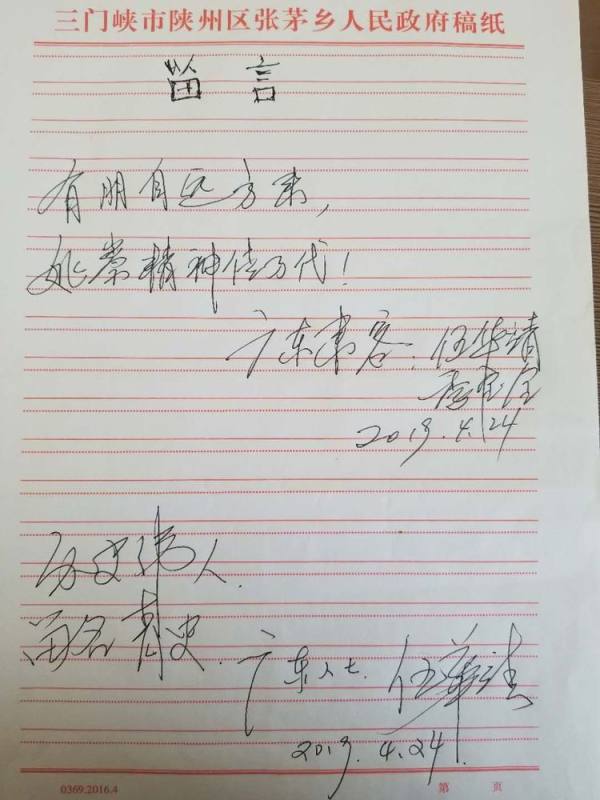 三门峡市陕州区张茅乡人民政府稿纸
留言
有朋自远方来,
姚崇精神传万代!
广东来客: 伍华
2019.4.24
历史伟人.
留名青史.
广东人士. 伍華
2019.4.24.
0369.2016.4 第 页